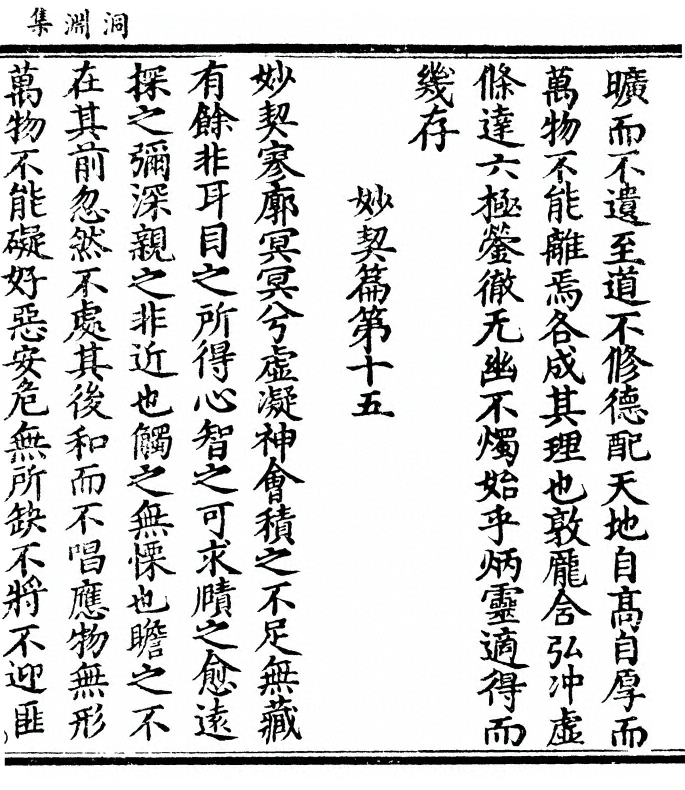 洞淵集
曠而不遺至道不修德配天地自髙自厚而
萬物不能離焉各成其理也敦龐含弘冲虛
條達六極鎣徹无幽不燭始乎炳靈適得而
幾存
妙契篇第十五
妙契寥廓冥冥兮虛凝神會積之不足無藏
有餘非耳目之所得心智之可求賾之愈遠
探之彌深親之非近也觸之無慄也瞻之不
在其前忽然不處其後和而不唱應物無形
萬物不能礙好惡安危無所缺不將不迎匪